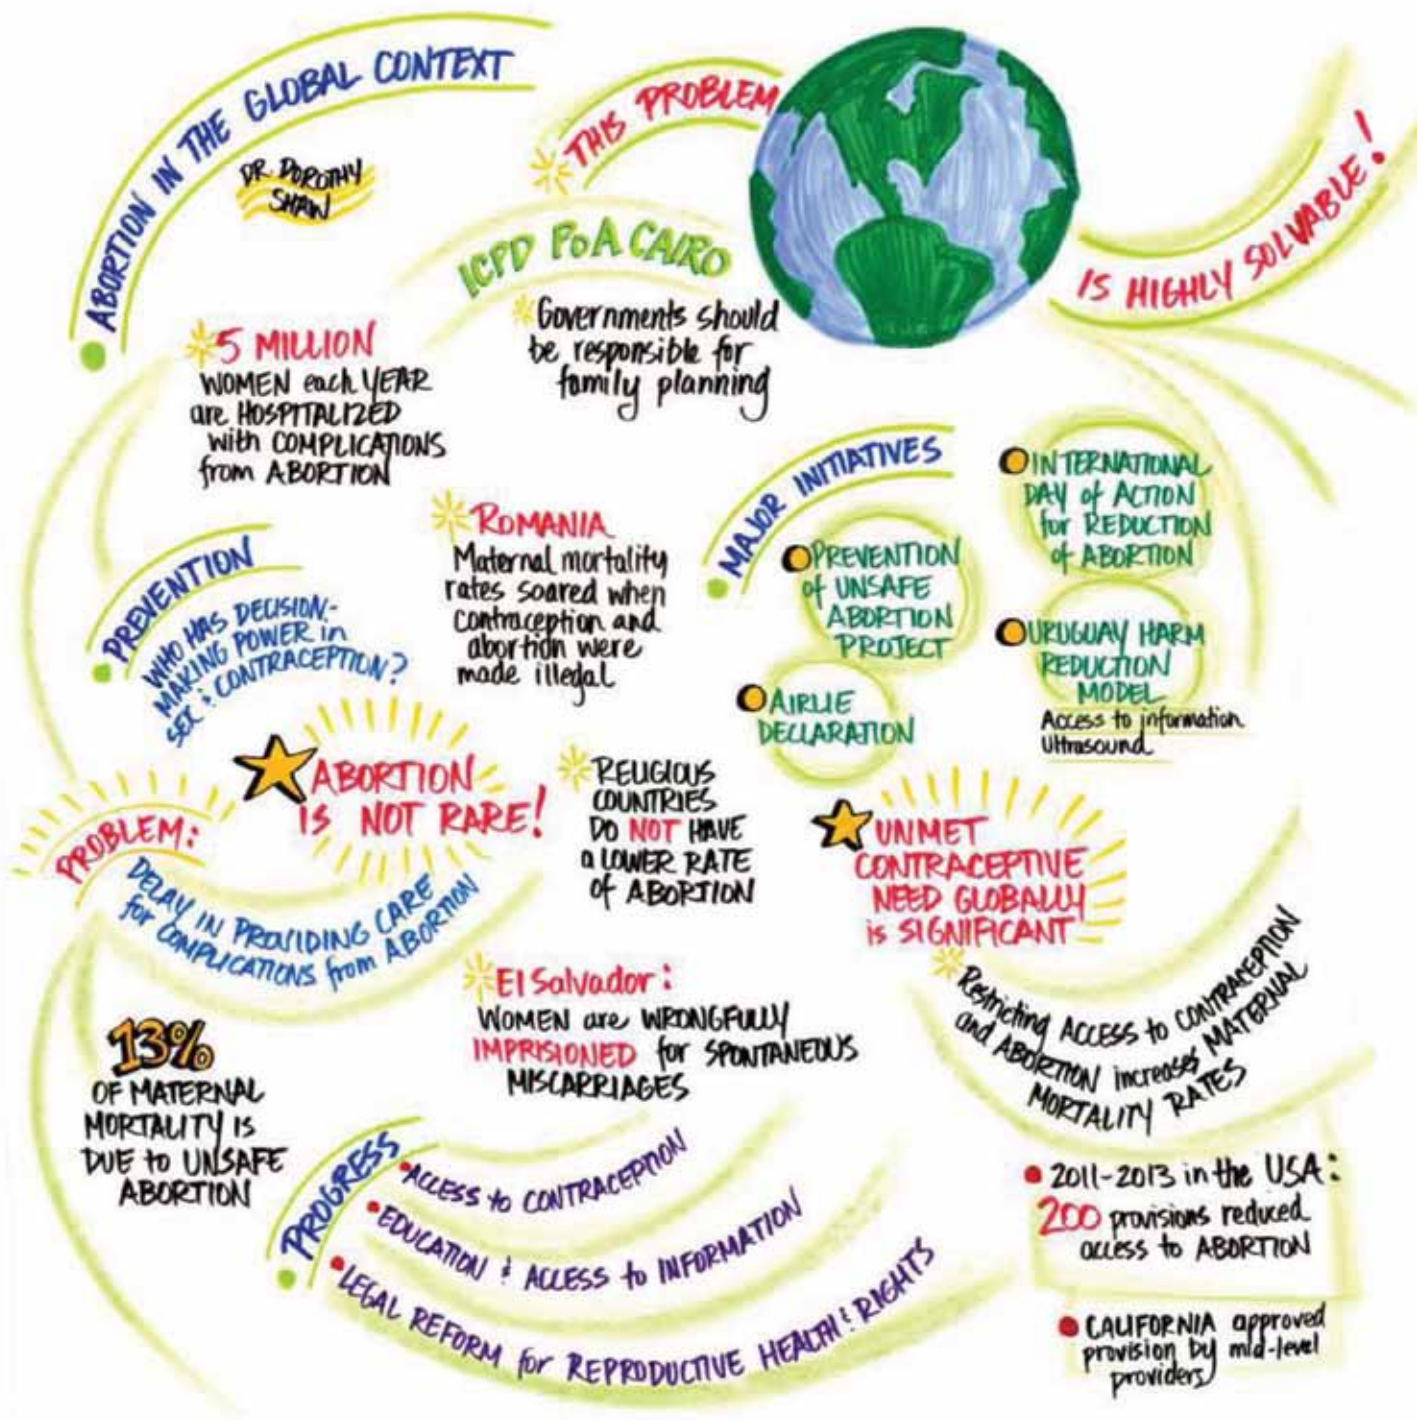 ABORTION IN THE GLOBAL CONTEXT
DR. DOROTHY
SHAW
THIS PROBLEM
IS HIGHLY SOLVABLE!
ICPD PoA CAIRO
Governments should
be responsible for
family planning
5 MILLION
WOMEN each YEAR
are HOSPITALIZED
with COMPLICATIONS
from ABORTION
ROMANIA
Maternal mortality
rates soared when
contraception and
abortion were
made illegal
MAJOR INITIATIVES
PREVENTION
of UNSAFE
ABORTION
PROJECT
AIRLIE
DECLARATION
INTERNATIONAL
DAY of ACTION
for REDUCTION
of ABORTION
URUGUAY HARM
REDUCTION
MODEL
Access to information
Ultrasound
PREVENTION
WHO HAS DECISION-
MAKING POWER in
SEX & CONTRACEPTION?
ABORTION
IS NOT RARE!
PROBLEM:
DELAY IN PROVIDING CARE
for COMPLICATIONS from ABORTION
RELIGIOUS
COUNTRIES
DO NOT HAVE
a LOWER RATE
of ABORTION
UNMET
CONTRACEPTIVE
NEED GLOBALLY
is SIGNIFICANT
Restricting ACCESS to CONTRACEPTION
and ABORTION increases MATERNAL
MORTALITY RATES
El Salvador:
WOMEN are WRONGFULLY
IMPRISIONED for SPONTANEOUS
MISCARRIAGES
13%
OF MATERNAL
MORTALITY IS
DUE to UNSAFE
ABORTION
PROGRESS
ACCESS to CONTRACEPTION
EDUCATION & ACCESS to INFORMATION
LEGAL REFORM for REPRODUCTIVE HEALTH & RIGHTS
2011-2013 in the USA:
200 provisions reduced
access to ABORTION
CALIFORNIA approved
provision by mid-level
providers